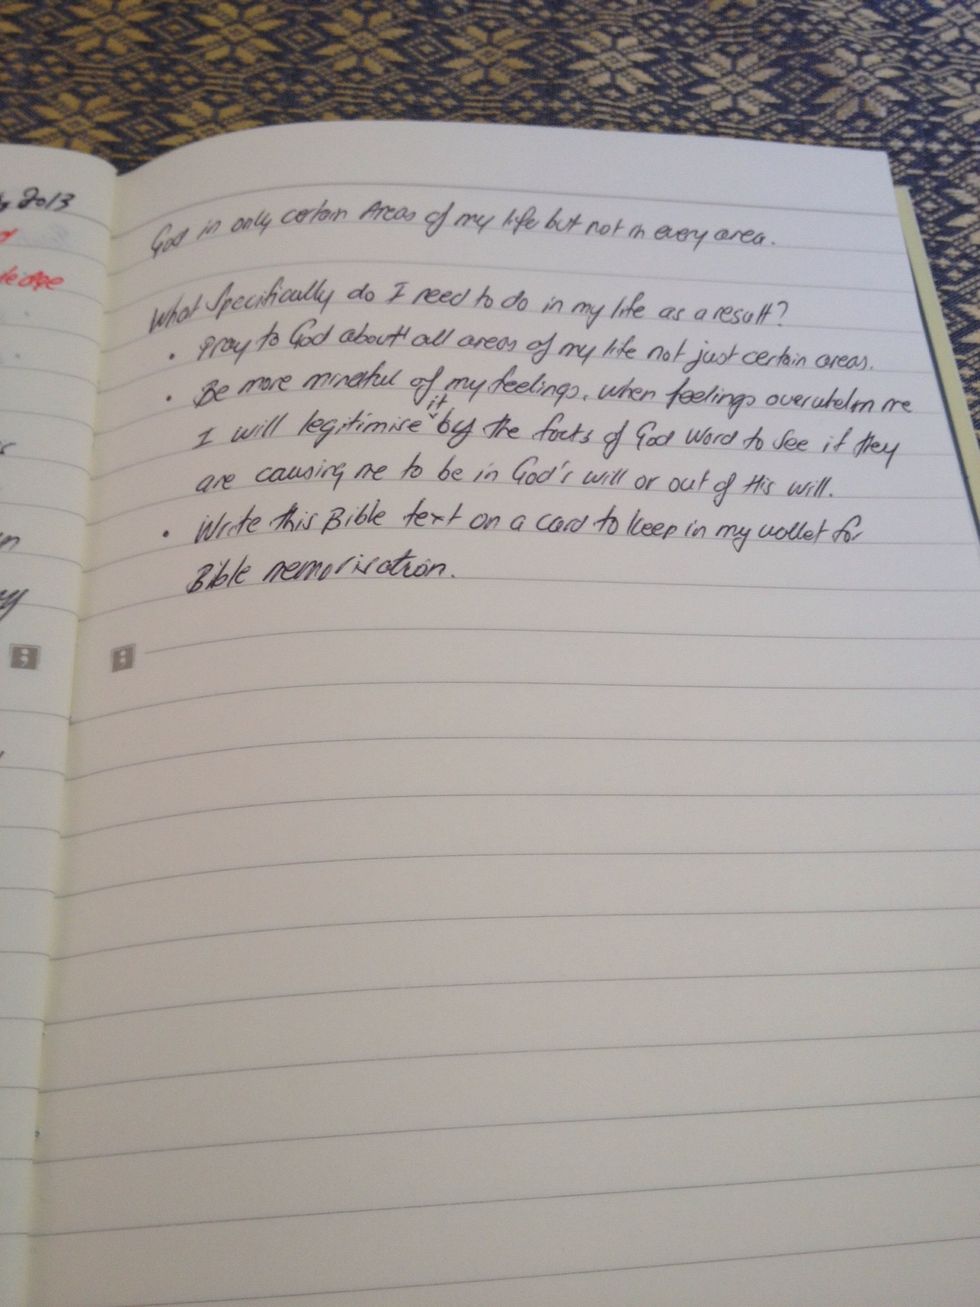 2013
God in only certain Areas of my life but not in every area.
What Specifically do I need to do in my life as a result?
• Pray to God about all areas of my life not just certain areas.
• Be more mindful of my feelings, when feelings overwhelm me
I will legitimise it by the facts of God Word to see if they
are causing me to be in God's will or out of His will.
• Write this Bible text on a card to keep in my wallet for
Bible memorisation.